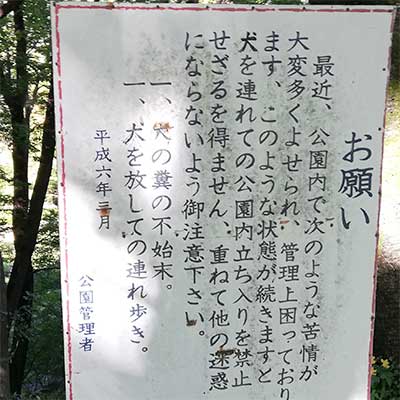 お願い
最近、公園内で次のような苦情が
大変多くよせられ、管理上困っており
ます、このような状態が続きますと
犬を連れての公園内立ち入りを禁止
せざるを得ません、重ねて他の迷惑
にならないよう御注意下さい。
一、犬の糞の不始末。
一、犬を放しての連れ歩き。
平成六年三月
公園管理者